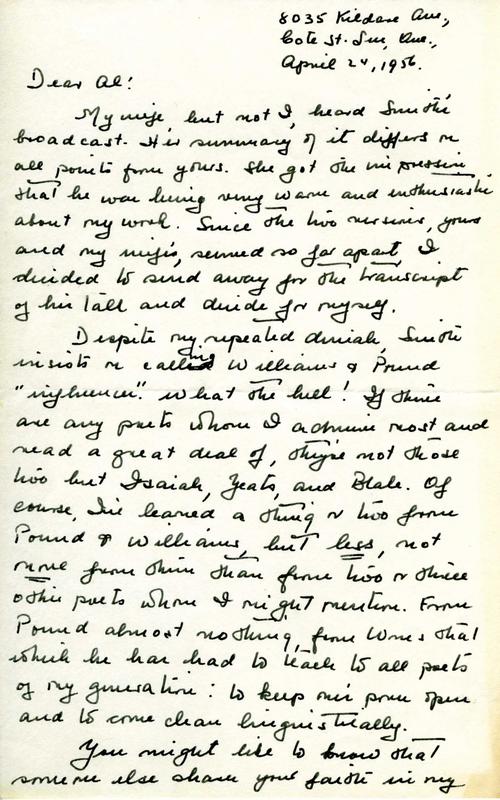 8035 Kildare Ave.,
Cote St. Luc, Que.,
April 24, 1956.
Dear Al:
My wife, but not I, heard Smith's
broadcast. Her summary of it differs on
all points from yours. She got the impression
that he was being very warm and enthusiastic
about my work. Since the two versions, yours
and my wife's, seemed so far apart, I
decided to send away for the transcript
of his talk and decide for myself.
Despite my repeated denials, Smith
insists on calling Williams & Pound
"influences". What the hell! If there
are any poets whom I admire most and
read a great deal of, they're not those
two but Isaiah, Yeats, and Blake. Of
course, I've learned a thing or two from
Pound & Williams, but less, not
more from them than from two or three
other poets whom I might mention. From
Pound almost nothing, from Wms that
which he has had to teach to all poets
of my generation: to keep one's pores open
and to come clean linguistically.
You might like to know that
someone else shares your faith in my